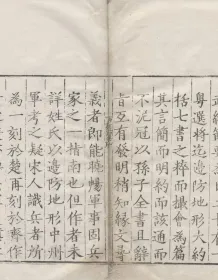 粵選將迄邊防地形大約
括七書之粹而攟會為篇
其言簡而明約而該而
不泥冠以孫子全書且辭
旨互有發明稍知緣文尋
義者即能將暢軍事固兵
家之一指南也但作者未
詳姓氏以邊防地形中州
軍考之疑宋人識兵者所
為一刻於楚再刻於晉作